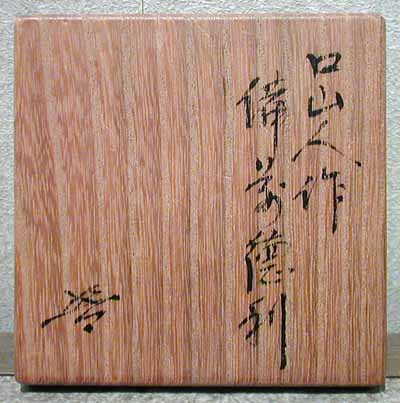 口山人作
備前徳利